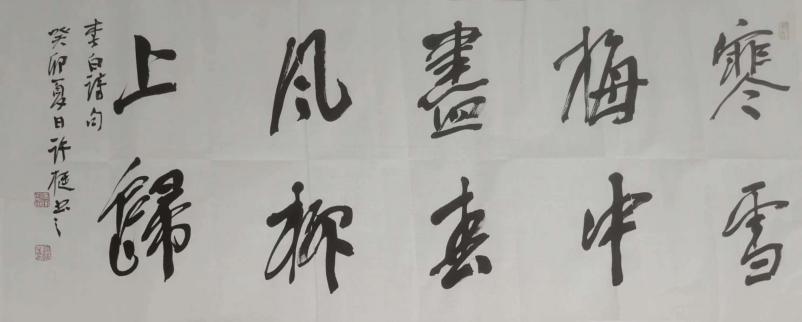 寒雪
梅中
盡春
风柳
上歸
李白詩句
癸卯夏日许書之